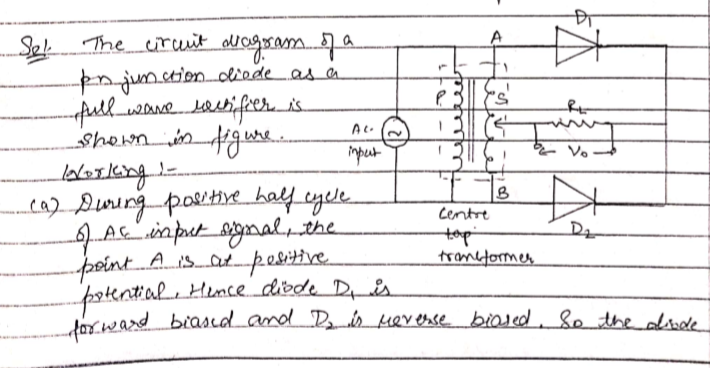 Sol. The circuit diagram of a
pn junction diode as a
full wave rectifier is
shown in figure.
Working :-
(a) During positive half cycle
of AC input signal, the
point A is at positive
potential. Hence diode D₁ is
forward biased and D₂ is reverse biased. So the diode
D₁
A
P
S
RL
AC.
input
~
Vo
B
Centre
tap
transformer
D₂